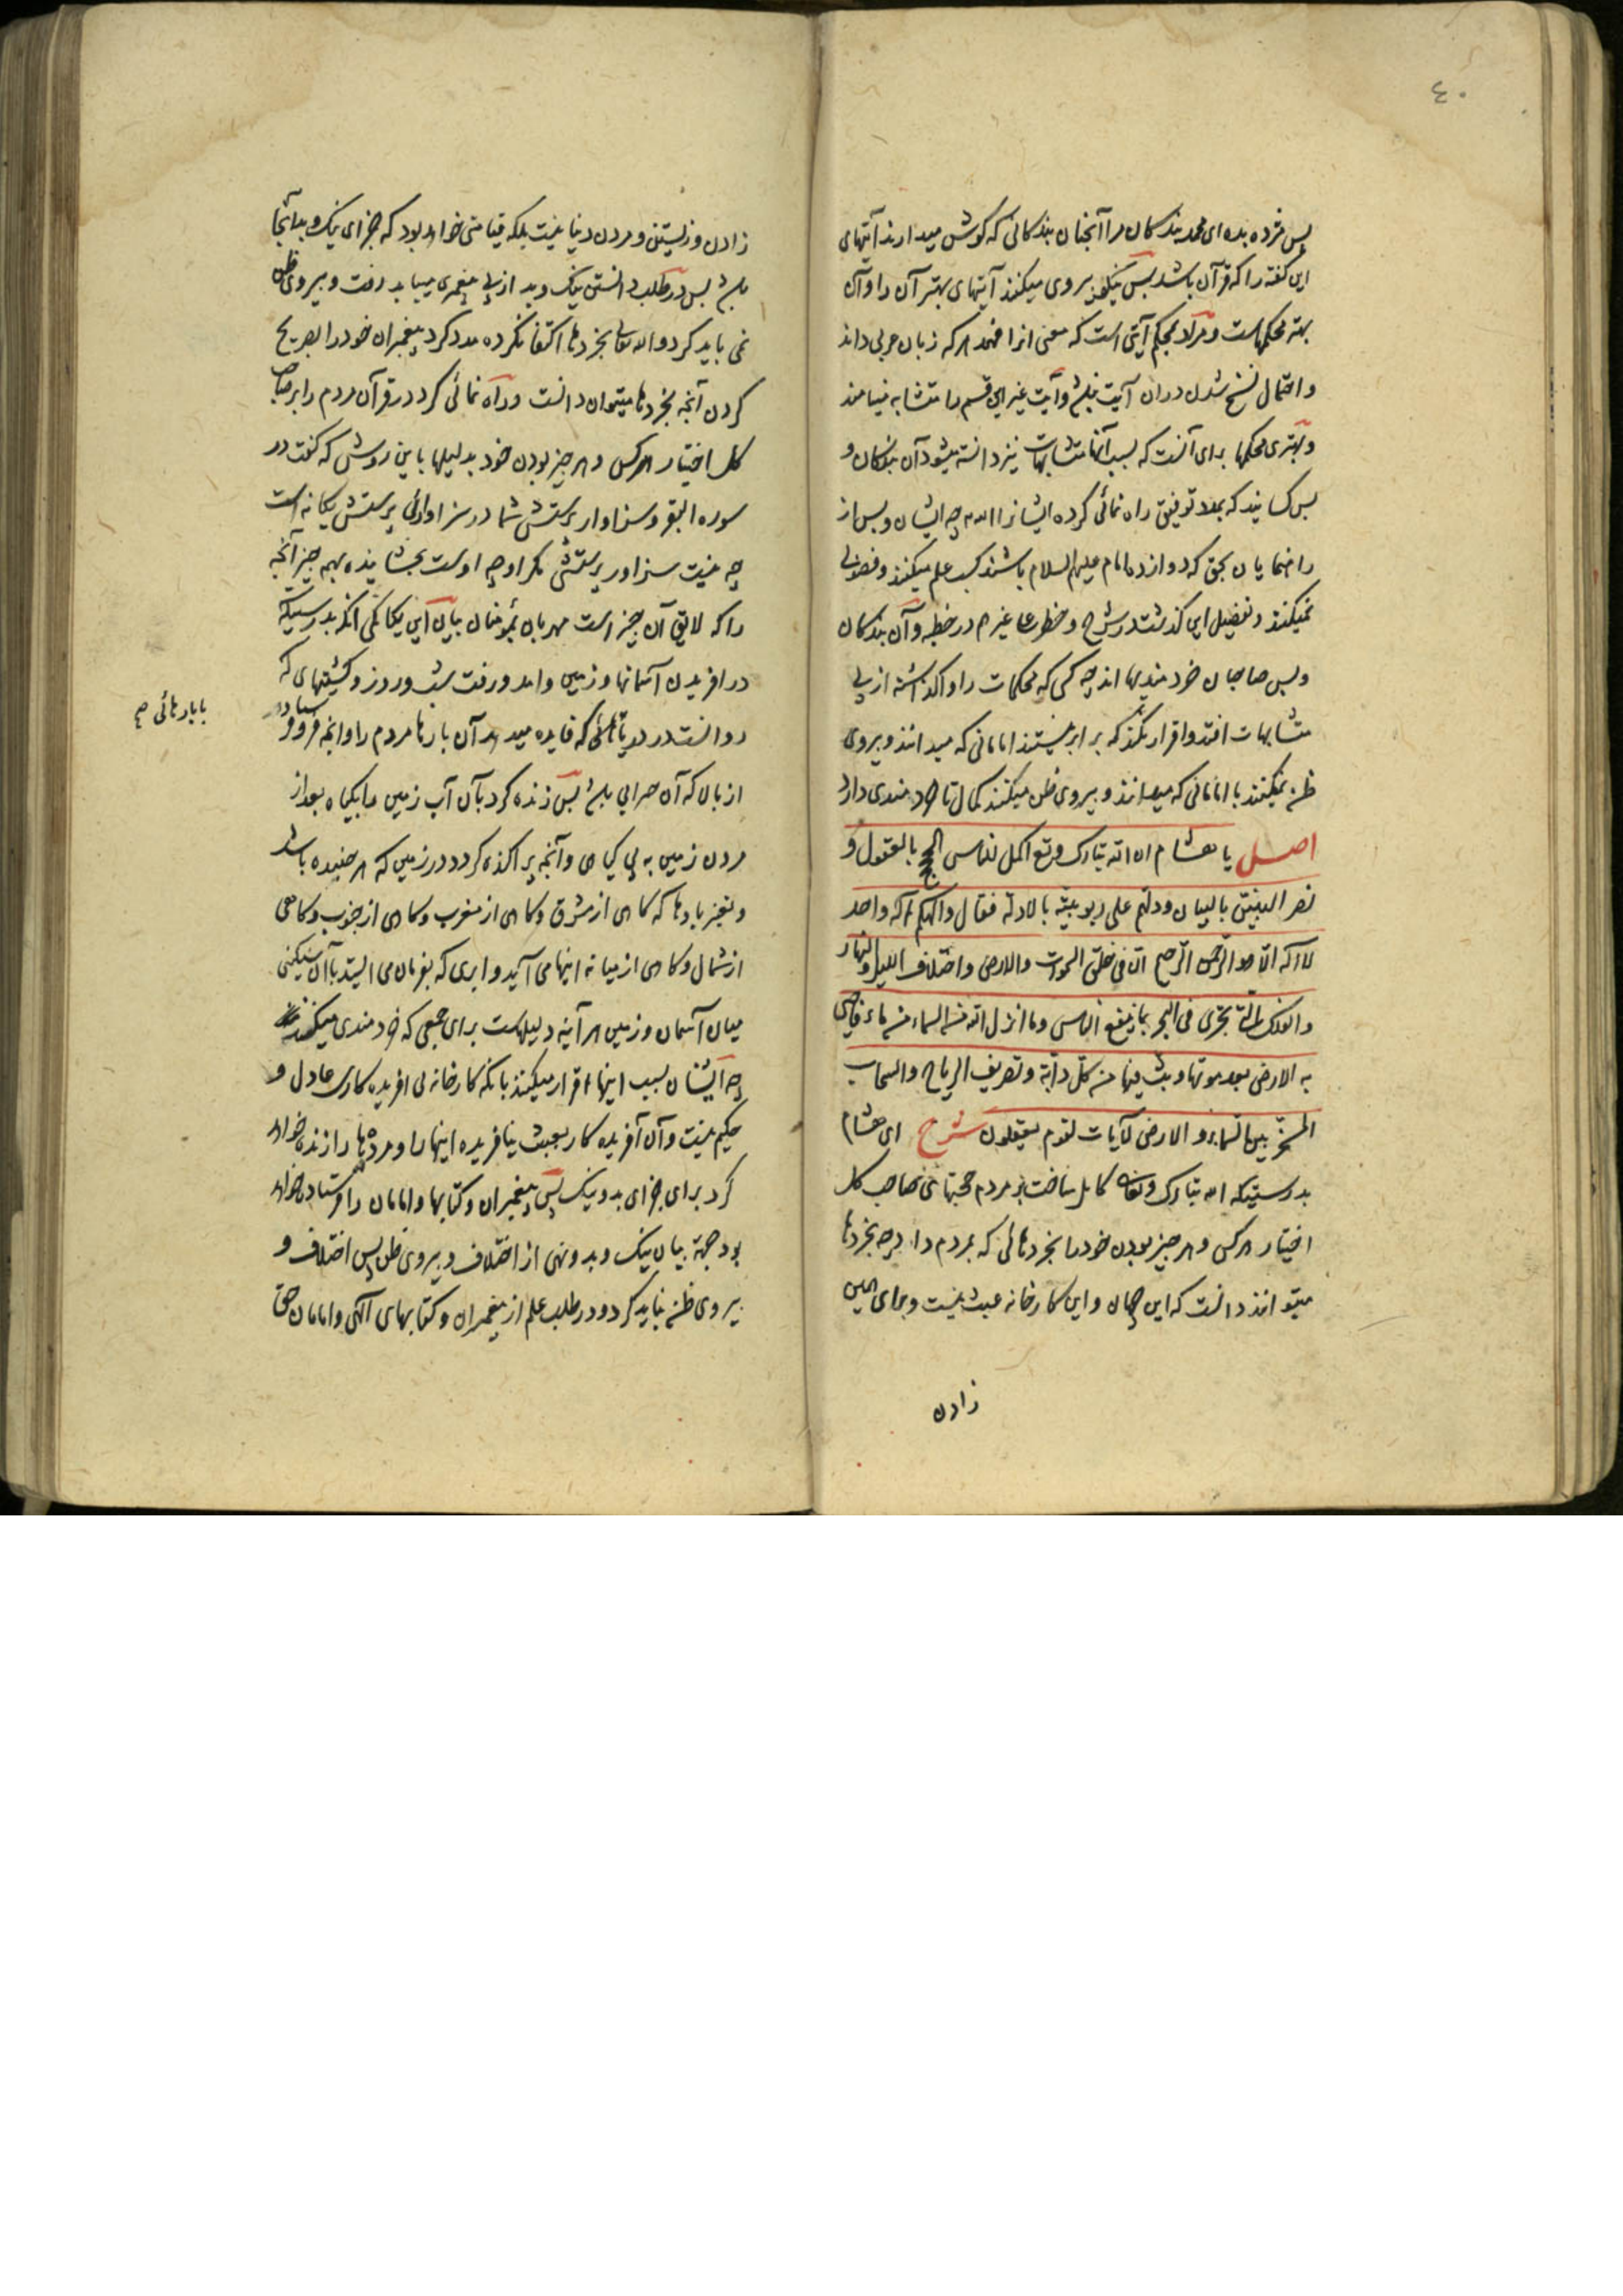 ٤٠
پس مژده بده ای محمد بندکان مرا آنچنان بندکانی که کوش میدارند آیتهای
این کفته را که قرآن باشد پس پیروی میکنند آیتهای بهتر آن را و آن
بهتر محکمهاست و مراد بمحکم آیتی است که معنی آنرا فهمد هر که زبان عربی داند
و احتمال نسخ شدن در آن آیت نباشد و آیت غیر این قسم را متشابه مینامند
و بهتری محکمها برای آنست که بسبب آنها متشابهات نیز دانسته میشود آن بندکان و
بس کسانیند که بمدد توفیق راه نمائی کرده ایشانرا الله چه ایشان و بس از
راهنمایان بحق که دوازده امام علیهم السلام باشند کسب علم میکنند و فضولی
نمیکنند و تفصیل این کذشت در شرح و خطرعا غیرم در خطبه و آن بندکان
و بس صاحبان خردمندیها اند چه کسی که محکمات را واکذاشته از پی
متشابهات افتد و اقرار نکند که برابر نیستند امامانی که میدانند و پیروی
ظن نمیکنند با امامانی که نمیدانند و پیروی ظن میکنند کمال ناخردمندی دارد
اصل یا هشام ان الله تبارک و تع اکمل للناس الحجج بالعقول و
نصر النبیین بالبیان و دلهم علی ربوبیته بالادلة فقال و الهکم اله واحد
لا اله الا هو الرحمن الرحیم ان فی خلق السموات والارض واختلاف اللیل والنهار
والفلک التی تجری فی البحر بما ینفع الناس وما انزل الله من السماء من ماء فاحیی
به الارض بعد موتها وبث فیها من کل دابة وتصریف الریاح والسحاب
المسخر بین السماء و الارض لآیات لقوم یعقلون شرح ای هشام
بدرستیکه الله تبارک وتعالی کامل ساخت بر مردم حجتهای صاحب کل
اختیار هر کس و هر چیز بودن خود را بخردهائی که بمردم داد چه بخردها
میتوانند دانست که این جهان و این کارخانه عبث نیست و برای همین
زادن
زادن و زیستن و مردن دنیا نیست بلکه قیامتی خواهد بود که جزای نیک و بد آنجا
باشد پس در طلب دانستن نیک و بد از پی پیغمبری میباید رفت و پیروی ظن
نمی باید کرد و الله تعالی بخردها اکتفا نکرده مدد کرد پیغمبران خود را بصریح
کردن آنچه بخردها میتوان دانست و راه نمائی کرد در قرآن مردم را بر صاحب
کل اختیار هر کس و هر چیز بودن خود بدلیلها باین روش که کفت در
سوره البقر و سزاوار پرستش شما در سزاواری پرستش یکانه است
چه نیست سزاوار پرستش مکر او چه اوست بخشاینده بهمه چیز آنچه
را که لایق آن چیز است مهربان بمؤمنان بیان این یکانکی آنکه بدرستیکه
در آفریدن آسمانها و زمین و آمد و رفت شب و روز و کشتیهای که
روانست در دریا بابارهائی که فایده میدهد آن بارها مردم را و آنچه فرو فرستاد
بابارهائی صح
از بالا که آن هر آبی باشد پس زنده کرد بآن آب زمین را بکیاه بعد از
مردن زمین به بی کیاهی و آنچه پراکنده کرد در زمین که هر جنبنده باشد
و تغییر بادها که کاهی از مشرق و کاهی از مغرب و کاهی از جنوب و کاهی
از شمال و کاهی از میانه اینها می آید و ابری که بفرمان می ایستد بآن سنکینی
میان آسمان و زمین هر آینه دلیلهاست برای جمعی که خردمندی میکنند
چه ایشان بسبب اینها اقرار میکنند بآنکه کارخانه بی آفریده کاری عادل و
حکیم نیست و آن آفریده کار بعبث نیافریده اینها را و مرده ها را زنده خواهد
کرد برای جزای بد و نیک پس پیغمبران و کتابها و امامان را فرستاده خواهد
بود جهة بیان نیک و بد و نهی از اختلاف و پیروی ظن پس اختلاف و
پیروی ظن نباید کرد و در طلب علم از پیغمبران و کتابهای الهی و امامان حق